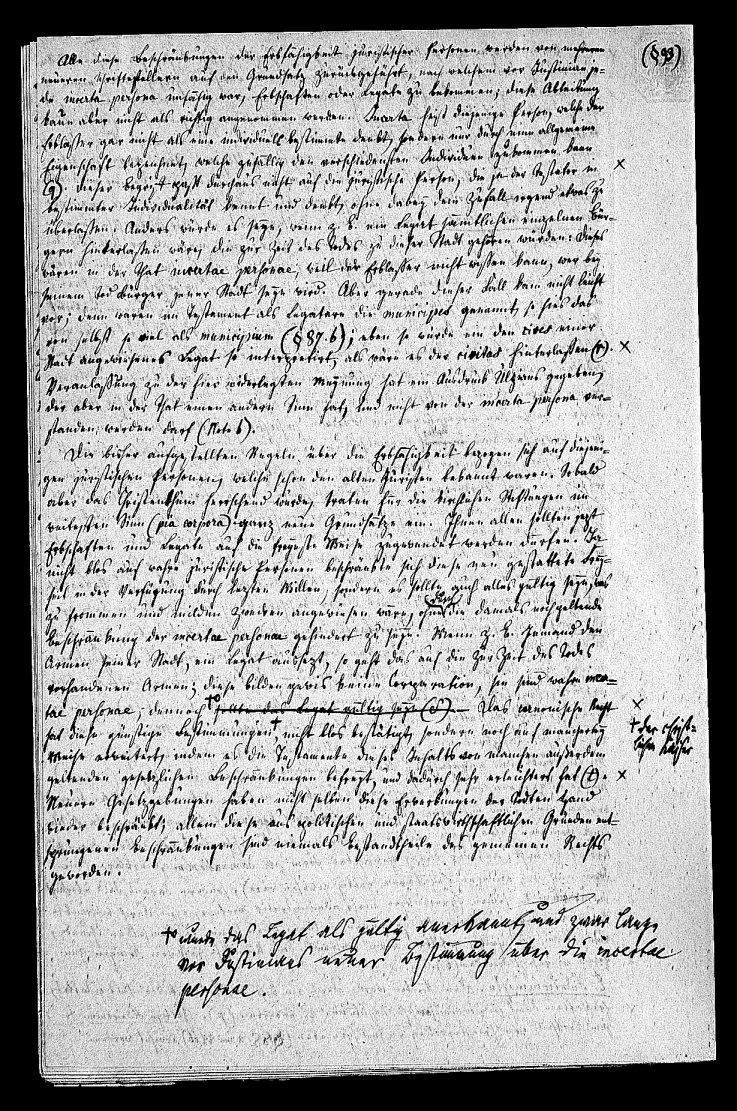 (§ 93)
Alle diese Beschränkungen der Erbfähigkeit juristischer Personen werden von mehreren
neueren Schriftstellern auf den Grundsatz zurückgeführt, nach welchem vor Justinian je-
de incerta persona unfähig war, Erbschaften oder Legate zu bekommen; diese Ableitung
kann aber nicht als richtig angenommen werden. Incerta heißt diejenige Person, welche der
Erblasser gar nicht als eine individuell bestimmte denkt, sondern nur durch eine allgemeine
Eigenschaft bezeichnet, welche zufällig den verschiedensten Individuen zukommen kann
(q). Dieser Begriff paßt durchaus nicht auf die juristische Person, die ja der Testator in ×
bestimmter Individualität kennt und denkt, ohne dabey dem Zufall irgend etwas zu
überlassen. Anders würde es seyn, wenn z. B. ein Legat sämmtlichen einzelnen Bür-
gern hinterlassen wäre, die zur Zeit des Todes zu dieser Stadt gehören würden: diese
wären in der That incertae personae, weil der Erblasser nicht wissen kann, wer bey
seinem Tod Bürger jener Stadt seyn wird. Aber gerade dieser Fall kam nicht leicht
vor; denn waren im Testament als Legatare die municipes genannt, so hies das
von selbst so viel als municipium (§ 87. b); eben so wurde ein den cives einer
Stadt angewiesenes Legat so interpretirt, als wäre es der civitas hinterlassen (r). ×
Veranlassung zu der hier widerlegten Meynung hat ein Ausdruck Ulpians gegeben,
der aber in der That einen andern Sinn hat, und nicht von der incerta persona ver-
standen werden darf (Note b).
Die bisher aufgestellten Regeln über die Erbfähigkeit bezogen sich auf diejeni-
gen juristischen Personen, welche schon den alten Juristen bekannt waren. Sobald
aber das Christenthum herrschend wurde, traten für die kirchlichen Stiftungen im
weitesten Sinn (pia corpora) ganz neue Grundsätze ein. Ihnen allen sollten jetzt
Erbschaften und Legate auf die freyeste Weise zugewendet werden dürfen. Ja
nicht blos auf wahre juristische Personen beschränkte sich diese neu gestattete Frey-
heit in der Verfügung durch letzten Willen, sondern es sollte auch alles gültig seyn, was
zu frommen und milden Zwecken angewiesen wäre, ohne durch die damals noch geltende
Beschränkung der incertae personae gehindert zu seyn. Wenn z. B. Jemand den
Armen seiner Stadt, ein Legat aussetzt, so geht das auf die zur Zeit des Todes
vorhandenen Armen; diese bilden gewis keine Corporation, sie sind wahre incer-
tae personae; dennoch sollte das Legat gültig seyn (s). Das canonische Recht ×
hat diese günstige Bestimmungen † nicht blos bestätigt, sondern noch auf mancherley
† der christ-
lichen Kaiser
Weise erweitert, indem es die Testamente dieses Inhalts von manchen außerdem
geltenden gesetzlichen Beschränkungen befreyt, und dadurch sehr erleichtert hat (t). ×
Neuere Gesetzgebungen haben nicht selten diese Erwerbungen der todten Hand
wieder beschränkt; allein diese aus politischen und staatswirthschaftlichen Gründen ent-
sprungenen Beschränkungen sind niemals Bestandtheile des gemeinen Rechts
geworden.
wurde das Legat als gültig anerkannt, und zwar lange
vor Justinians neuer Bestimmung über die incertae
personae.